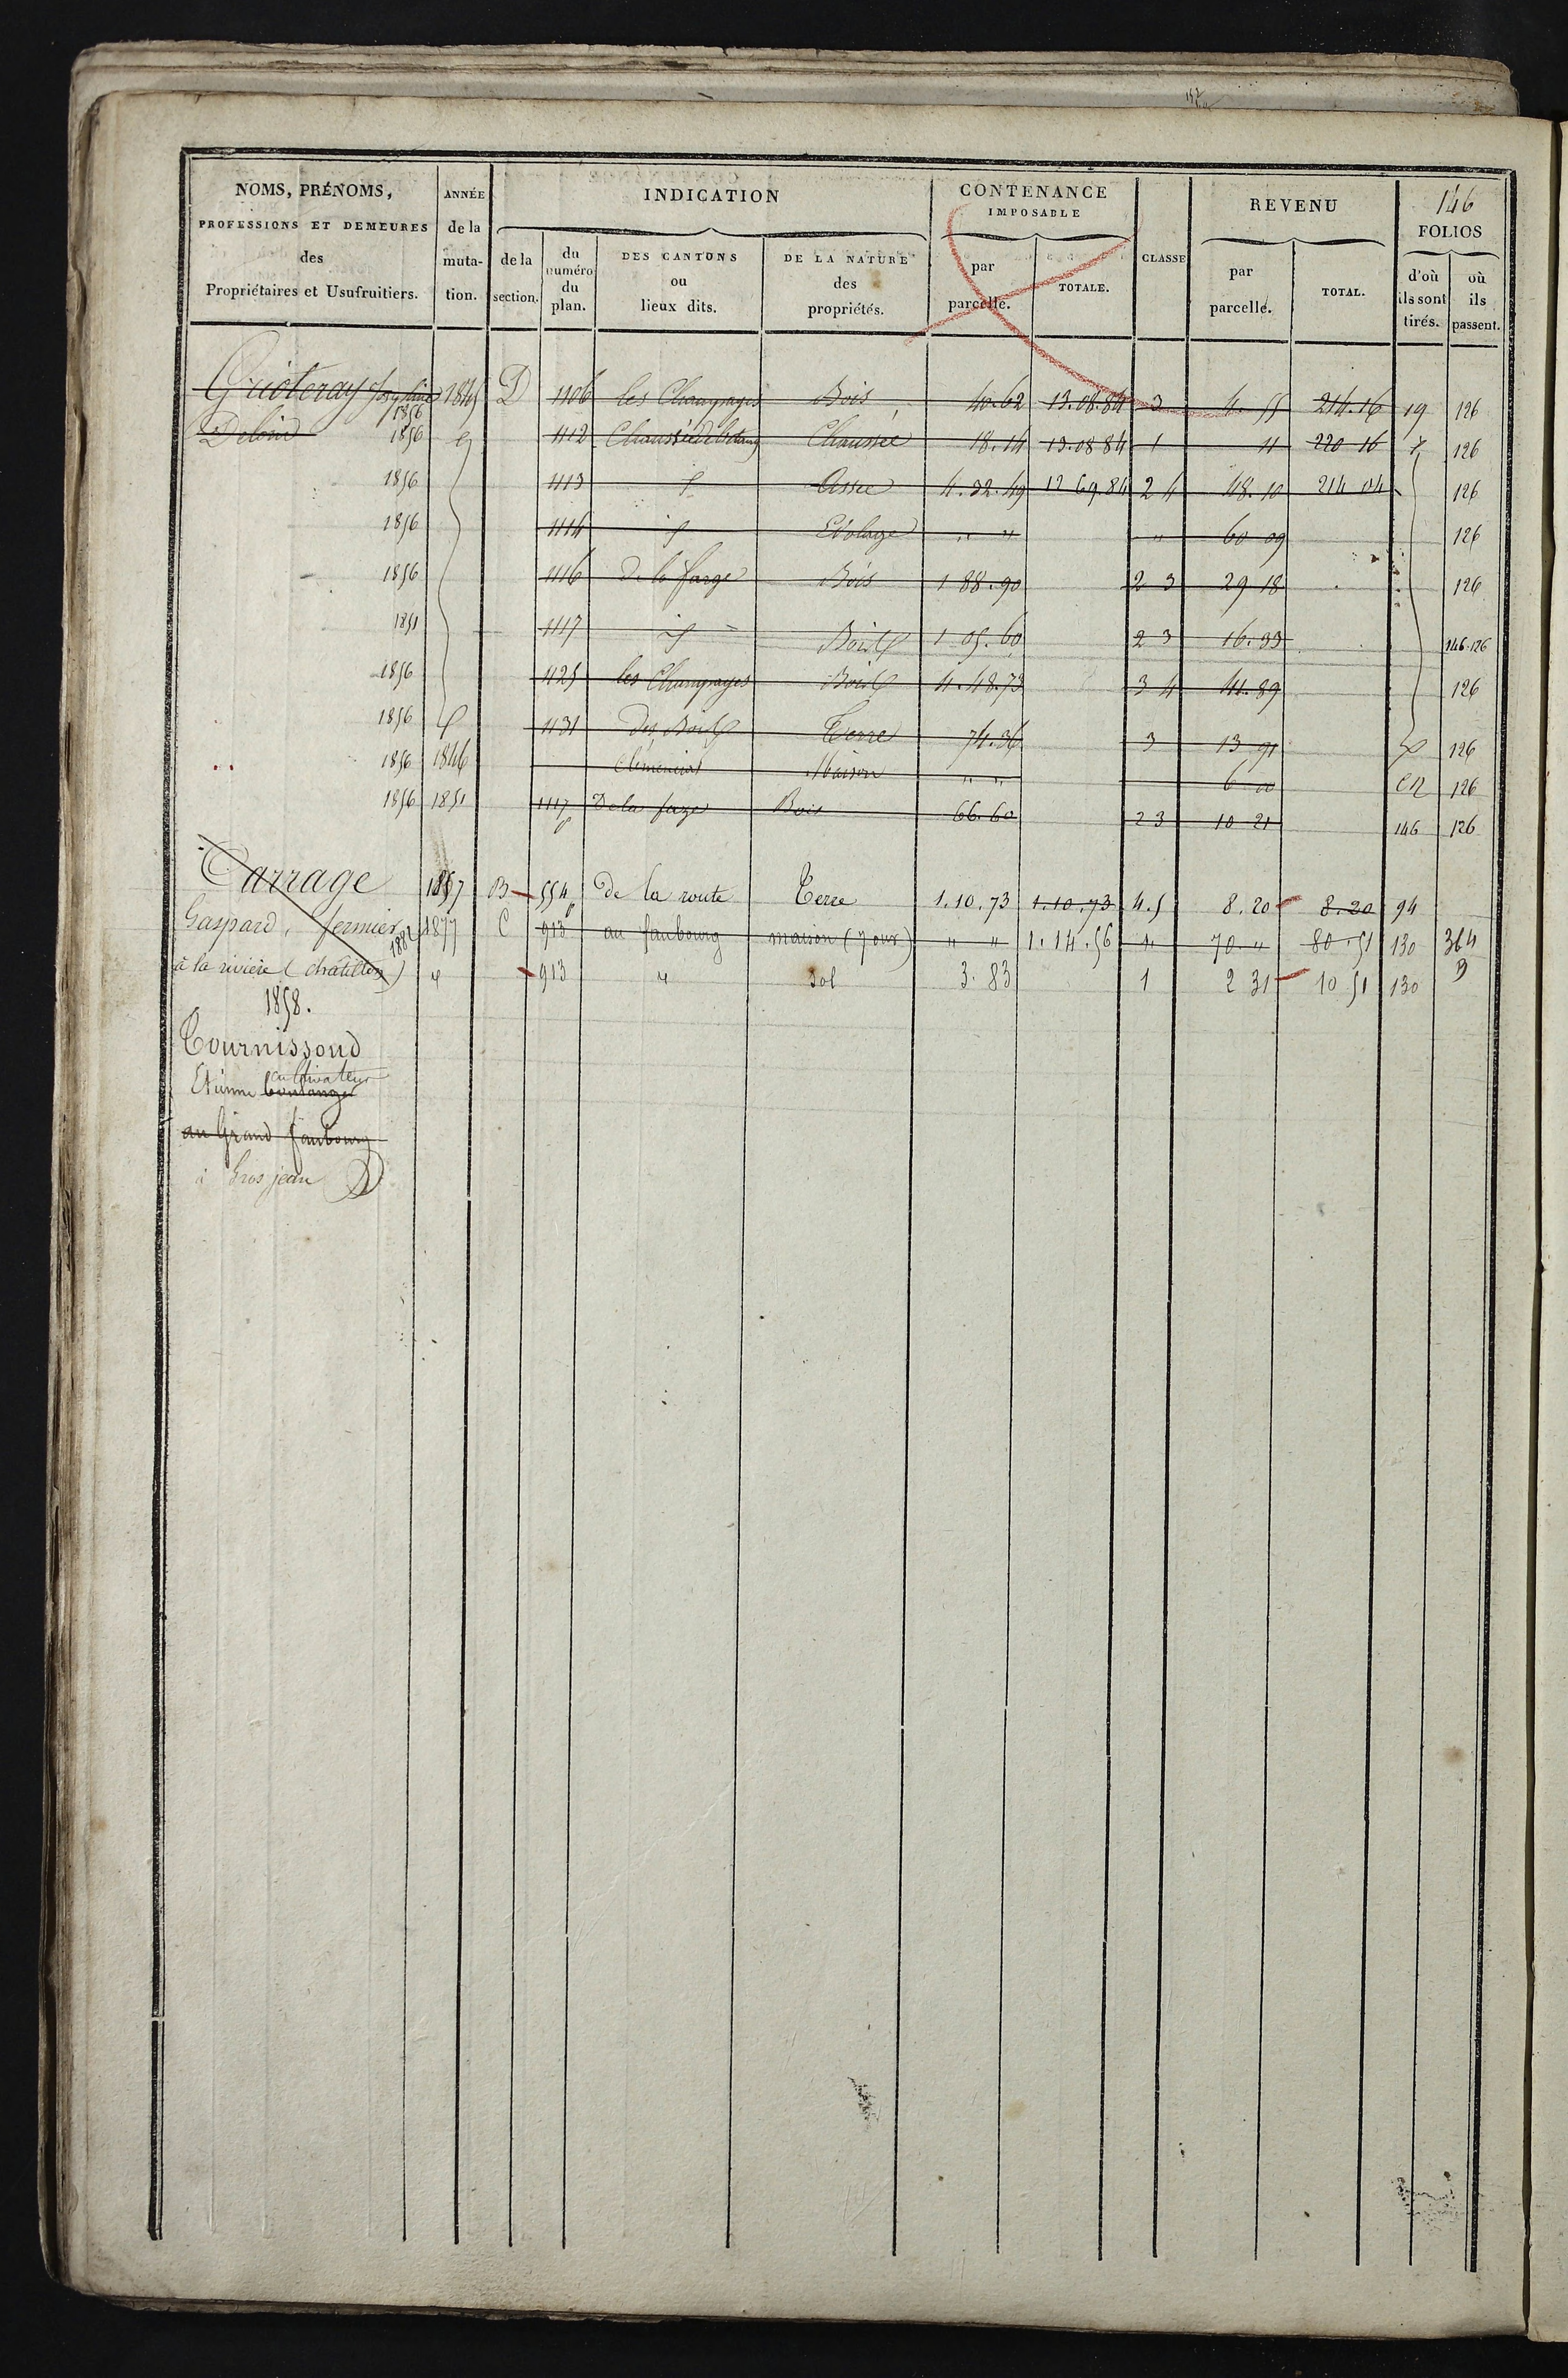 146
NOMS, PRÉNOMS, PROFESSIONS ET DEMEURES des Propriétaires et Usufruitiers.
ANNÉE de la muta-tion.
INDICATION
de la section.
du numéro du plan.
DES CANTONS ou lieux dits.
DE LA NATURE des propriétés.
CONTENANCE IMPOSABLE
par parcelle.
TOTALE.
CLASSE
REVENU
par parcelle.
TOTAL.
FOLIOS
d'où ils sont tirés.
où ils passent.
1845 D 1106 les Champages Bois 40.62 13.08.84 3 4.55 214.16 19 126
1856
1856 1112 Chaussée Chaussée 18.14 13.08.84 1 11 220 16 126
1856 1113 Assec 4.32.49 12 69.84 2 4 48.10 214 04 126
1856 1114 Evolage " " " 60 09 126
1856 1116 De la farge Bois 1 88.90 2 3 29 18 126
1851 1117 Bois 1 05.60 2 3 16.33 146.126
1856 1125 les Champages Bois 4.48.73 3 4 41.89 126
1856 1131 Des Bois Terre 74.36 3 13 91 126
1856 1846 Maison " " 6 00 126
1856 1851 1117 De la farge Bois 66.60 2 3 10 21 146 126
Carrage 1857 B 554 De la route Terre 1.10.73 1.10.73 4.5 8.20 8.20 94
Gaspard, fermier 1882 1877 C 913 au faubourg maison (7 ouv) " " 1.14.56 4 70 " 80.51 130 364
à la rivière (châtillon) 913 " sol 3.83 1 2 31 10 51 130
1858.
Tournissoud
cultivateur
Etienne boulanger
au Grand faubourg
à Gros jean